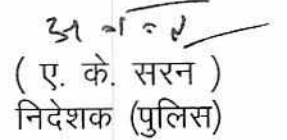 ( ए. के. सरन )
निदेशक (पुलिस)